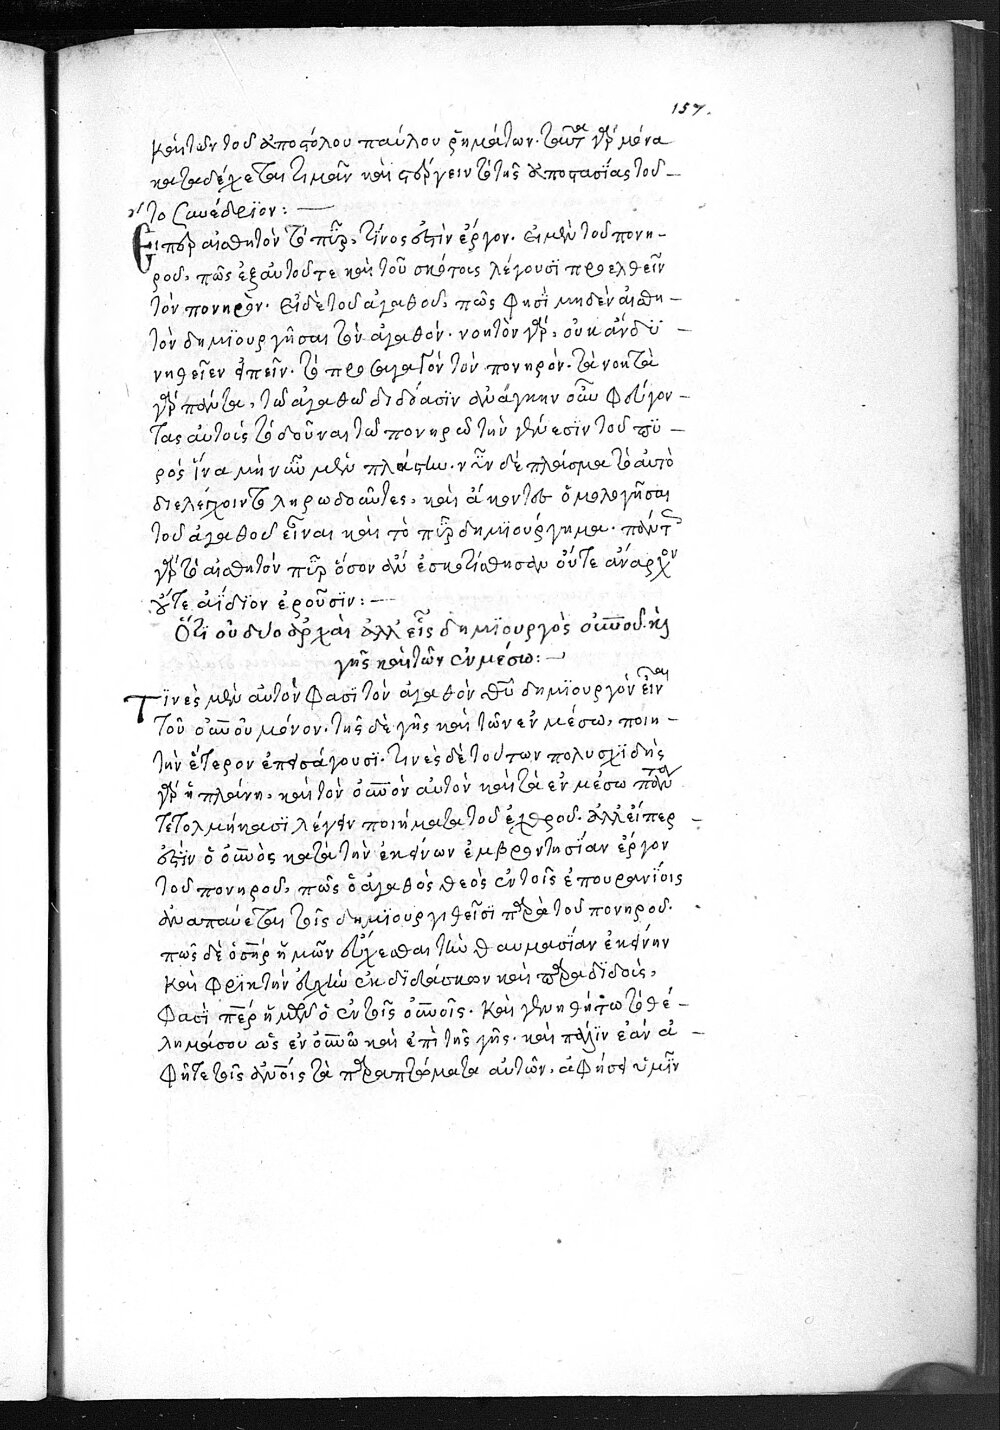 157.
καὶ τῶν τοῦ ἀποστόλου παύλου ῥημάτων. ταῦτα γὰρ μόνα
καταδέχεται τιμᾶν καὶ στέργειν τὸ τῆς ἀποστασίας τοῦ-
το συνέδριον:—
Εἴπερ αἰσθητὸν τὸ πῦρ, τίνος ἐστὶν ἔργον. εἰ μὲν τοῦ πονη-
ροῦ, πῶς ἐξ αὐτοῦ τε καὶ τοῦ σκότους λέγουσι προελθεῖν
τὸν πονηρὸν. εἰ δὲ τοῦ ἀγαθοῦ, πῶς φησὶ μηδὲν αἰσθη-
τὸν δημιουργῆσαι τὸν ἀγαθόν. νοητὸν γὰρ, οὐκ ἂν δυ-
νηθεῖεν εἰπεῖν. τὸ προαγαγὸν τὸν πονηρόν. τὰ νοητὰ
γὰρ πάντα, τῶ ἀγαθῶ διδόασιν ἀνάγκην οὖν φεύγον-
τας αὐτοὺς τὸ δοῦναι τῶ πονηρῶ τὴν γένεσιν τοῦ πυ-
ρός ἵνα μὴ νῦν μὲν πλάστην. νῦν δὲ πλάσμα τὸ αὐτὸ
διελέγχοιντο ληρωδοῦντες, καὶ ἄκοντας ὁμολογῆσαι
τοῦ ἀγαθοῦ εἶναι καὶ τὸ πῦρ δημιούργημα. πάντως
γὰρ τὸ αἰσθητὸν πῦρ ὅσον ἂν ἐσκοτίσθησαν οὔτε ἄναρχον
οὔτε ἀΐδιον ἐροῦσιν:—
Ὅτι οὐ δυο ἀρχαὶ ἀλλ' εἷς δημιουργὸς οὐνοῦ. κὴ
γῆς καὶ τῶν ἐν μέσω:—
Τινὲς μὲν αὐτὸν φασὶ τὸν ἀγαθὸν θν δημιουργὸν εἶναι
τοῦ οὐνοῦ μόνον. τῆς δὲ γῆς καὶ τῶν ἐν μέσω, ποιη-
τὴν ἕτερον ἐπεισάγουσι. τινὲς δὲ τούτων πολυσχιδὴς
γὰρ ἡ πλάνη, καὶ τὸν οὐνὸν αὐτὸν καὶ τὰ ἐν μέσω πάντα
τετολμήκασι λέγειν ποιήματα τοῦ ἐχθροῦ. ἀλλ' εἴπερ
ἐστὶν ὁ οὐνὸς κατὰ τὴν ἐκείνων ἐμβροντησίαν ἔργον
τοῦ πονηροῦ, πῶς ὁ ἀγαθὸς θεὸς ἐν τοῖς ἐπουρανίοις
ἀναπαύεται τοῖς δημιουργηθεῖσι παρὰ τοῦ πονηροῦ.
πῶς δὲ ὁ σηρ ἡμῶν εὔχεσθαι τὴν θαυμασίαν ἐκείνην
καὶ φρικτὴν εὐχὴν ἐκδιδάσκων καὶ παραδιδοὺς,
φασὶ περ ἡμῶν ὁ ἐν τοῖς οὐνοῖς. καὶ γενηθήτω τὸ θέ-
λημά σου ὡς ἐν οὐνῶ καὶ ἐπὶ τῆς γῆς. καὶ πάλιν ἐὰν ἀ-
φῆτε τοῖς ἀνοῖς τὰ παραπτώματα αὐτῶν, ἀφήσει ὑμῖν